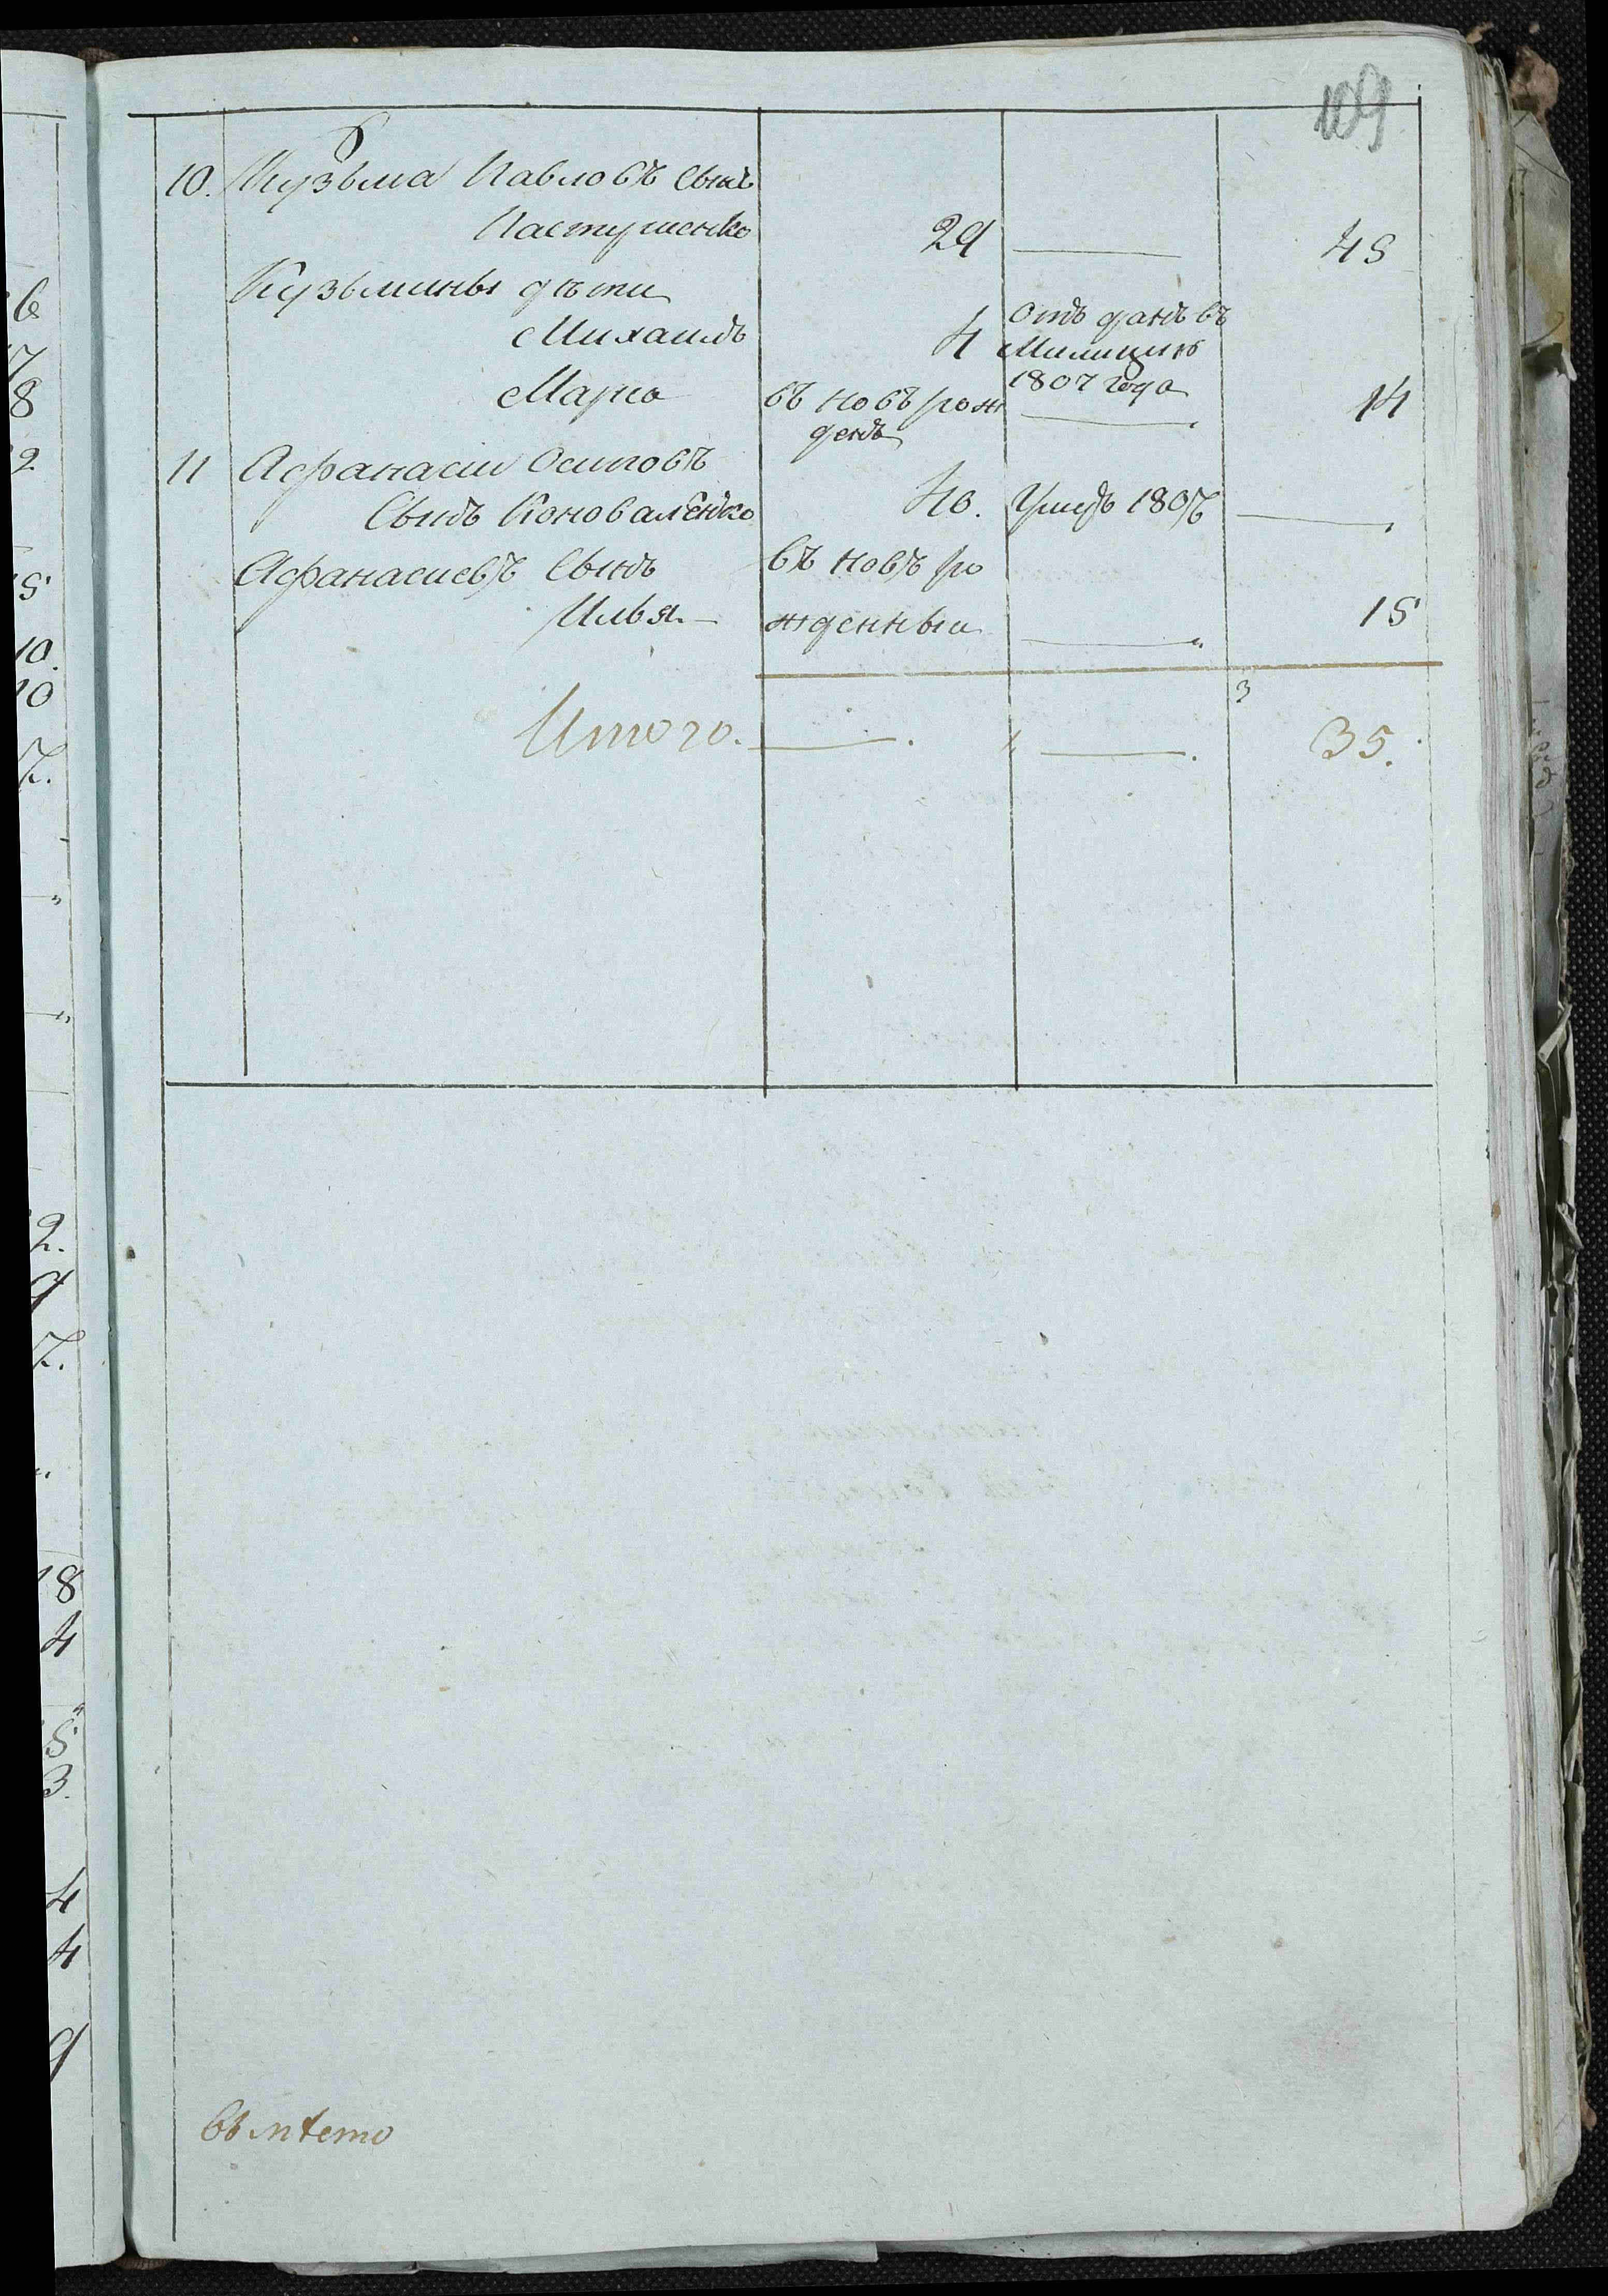 109
10. Кузьма Павловъ Сынъ
Пастушенко 29 45
Кузьмины дѣти
Михаилъ 4 Отъ данъ въ Милицию 1807 года
Марко въ новъ рож денъ 14
11 Афанасии Осиповъ
Сынъ Коноваленко 40. Умеръ 1807
Афанасиевъ Сынъ въ новъ ро
Илья. жденныи 15
Итого. 3 35.
Вмѣсто